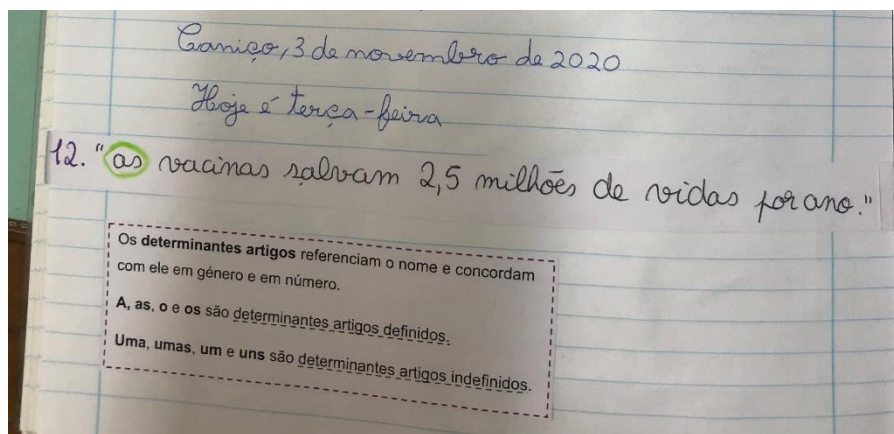 Caniço, 3 de novembro de 2020
Hoje é terça-feira
12. "as vacinas salvam 2,5 milhões de vidas por ano."
Os determinantes artigos referenciam o nome e concordam
com ele em género e em número.
A, as, o e os são determinantes artigos definidos.
Uma, umas, um e uns são determinantes artigos indefinidos.